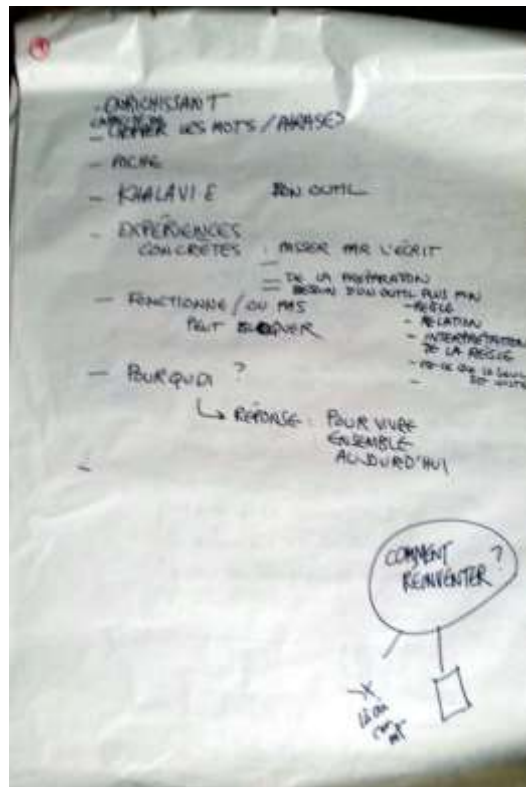 - ENRICHISSANT
LES MOTS / PHRASES
- RICHE
- KHALAVIE BON OUTIL
- EXPÉRIENCES
CONCRÈTES : PASSER PAR L'ÉCRIT
- DE LA PRÉPARATION
- BESOIN D'UN OUTIL PLUS FIN
- FONCTIONNE / OU PAS
PEUT BLOQUER
- RÈGLE
- RELATION
- INTERPRÉTATION
DE LA RÈGLE
- POURQUOI ?
↳ RÉPONSE : POUR VIVRE
ENSEMBLE
AUJOURD'HUI
-
COMMENT
RÉINVENTER ?